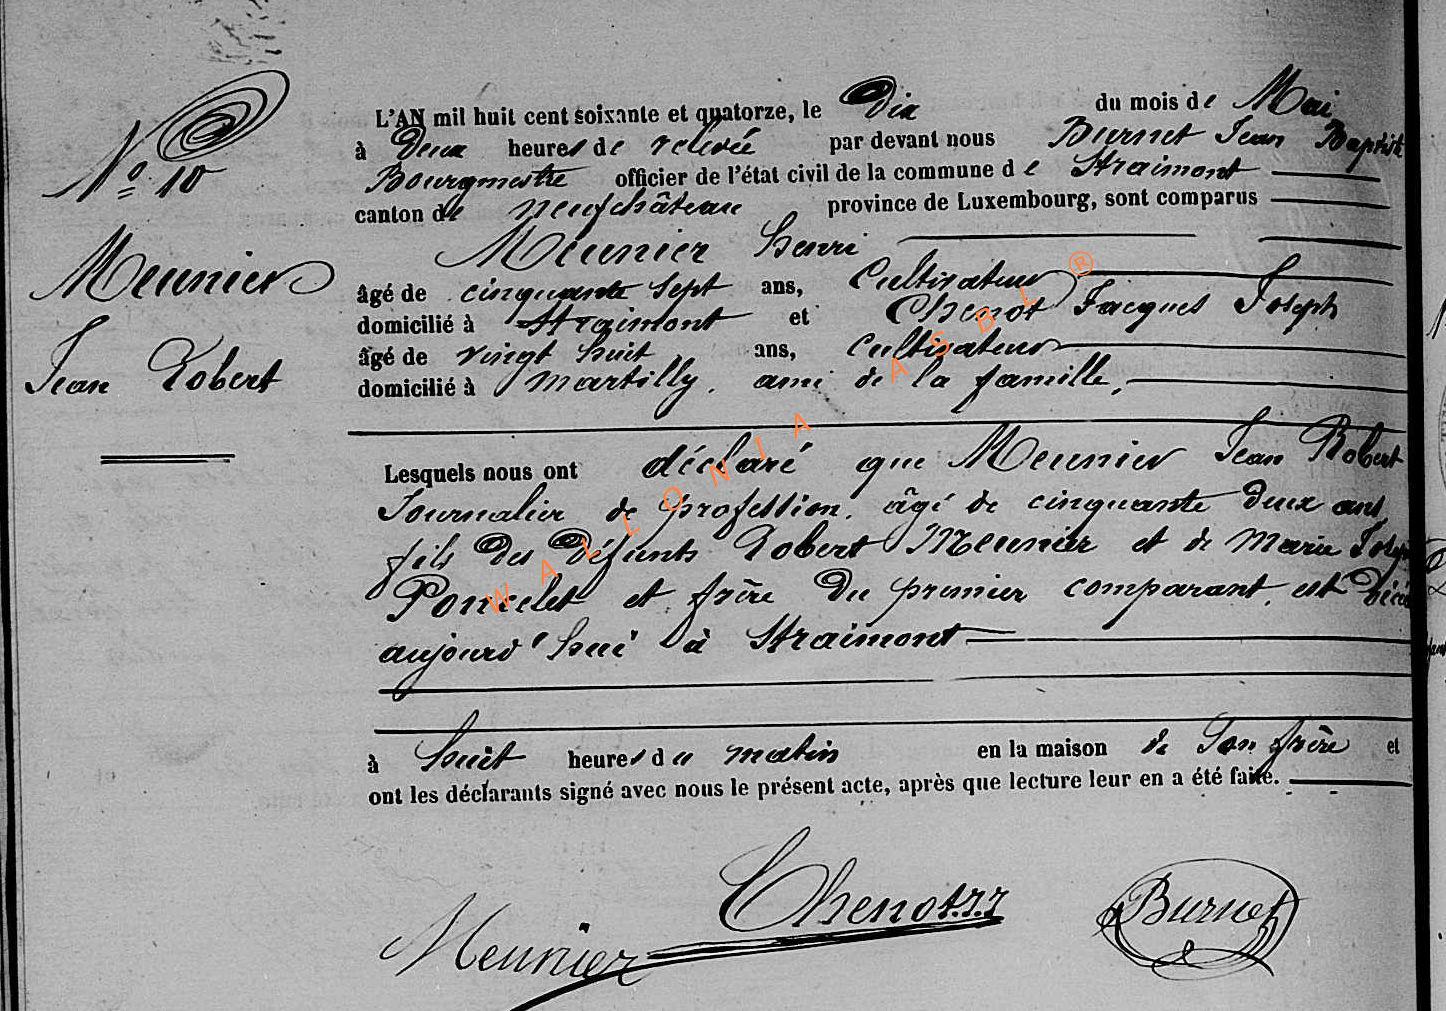 N° 10
Meunier
Jean Robert
L'AN mil huit cent soixante et quatorze, le Dix du mois de Mai
à Deux heures de relevée par devant nous Burnet Jean Baptist
Bourgmestre officier de l'état civil de la commune de Straimont
canton de neufchâteau province de Luxembourg, sont comparus
Meunier henri
âgé de cinquante sept ans, Cultivateur
domicilié à Straimont et Chenot Jacques Joseph
âgé de vingt huit ans, cultivateur
domicilié à martilly, ami de la famille,
Lesquels nous ont déclaré que Meunier Jean Robert
Journalier de profession, âgé de cinquante deux ans
fils des Défunts Robert Meunier et de Marie Josep
Poncelet et frère du premier comparant, est Décé
aujourd'hui à Straimont
à huit heures du matin en la maison de son frère et
ont les déclarants signé avec nous le présent acte, après que lecture leur en a été faite.
Meunier Chenot.J.J Burnet
WALLONIA ASBL ®